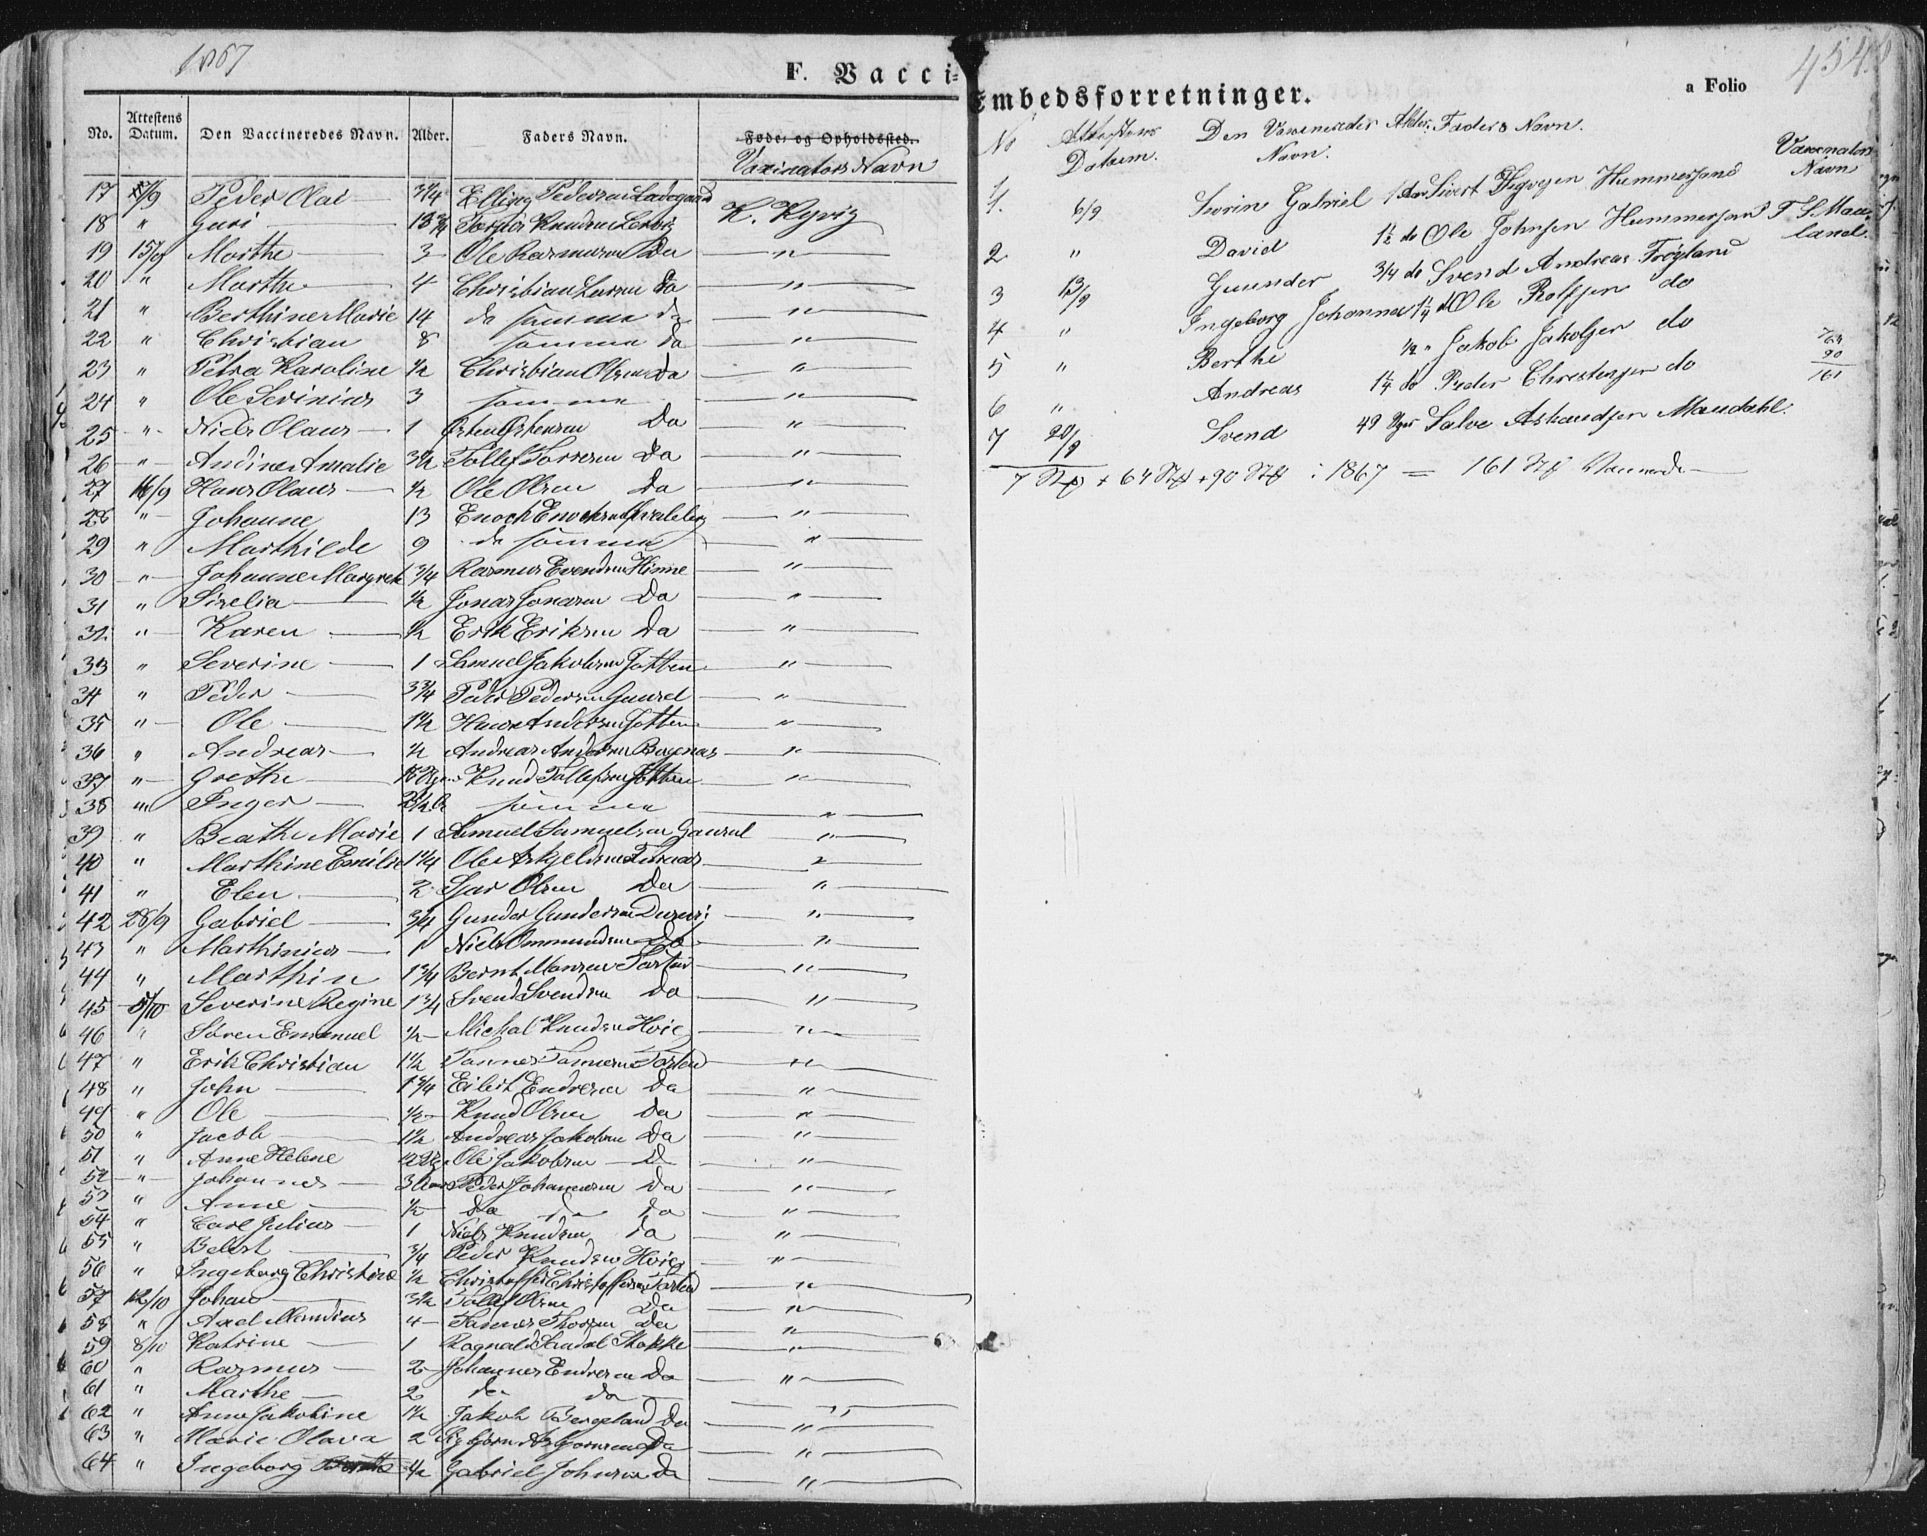 1867
F. Vacci=
No. Attestens Datum. Den Vaccineredes Navn. Alder. Faders Navn. Føde= og Opholdssted.
Vaxinators Navn
17 8/9 Peder Olai 3/4 Elling Pedersen Ladegaard
18 " Guri 13 3/4 Torger Knudsen Lervig K. Kyvig
19 15/9 Marthe 3 Ole Rasmusen Da "
20 " Marthe 4 Christian Larsen Da "
21 " Berthine Marie 14 da samme da "
22 " Christian 8 samme da "
23 " Petra Karoline 1/2 Christian Olsen Da "
24 " Ole Sevinius 3 samme "
25 " Niels Olaus 1 Østen Østensen Da "
26 " Andine Amalie 3 1/2 Tollef Torresen Da "
27 16/9 Hans Olaus 1/2 Ole Olsen Da "
28 " Johanne 13 Enoch Enochsen "
29 " Marthilde 9 da samme "
30 " Johanne Margrete 3/4 Rasmus Evendsen Hinne "
31 " Sirelia 1/2 Jonas Jonasen Da "
32 " Karen 1/2 Erik Eriksen Da "
33 " Severine 1 Samuel Jakobsen Jotten "
34 " Peder 3 3/4 Peder Pedersen Gausel "
35 " Ole 1 1/2 Hans Andersen Jotten "
36 " Andreas 1/2 Andreas Andersen "
37 " Grethe Knud Tollefsen Jotten "
38 " Inger 2 1/2 samme "
39 " Beathe Marie 1 Samuel Samuelsen Gausel "
40 " Marthine Emilie 1 1/4 Ole Askjeldsen "
41 " Elen 2 Sjur Olsen Da "
42 28/9 Gabriel 3/4 Gunder Gundersen "
43 " Marthinius 1 Niels Ommundsen Da "
44 " Marthin 1 3/4 Bernt Monsen "
45 5/10 Severine Regine 1 3/4 Svend Svendsen Da "
46 " Søren Emanuel 1/2 Michal Knudsen Hoie "
47 " Erik Christian 1 1/2 "
48 " John 1 3/4 Eilert Endresen Da "
49 " Ole 1/2 Knud Olsen Da "
50 " Jacob 1 1/2 Andreas Jakobsen Da "
51 " Anne Helene Ole Jakobsen D "
52 " Johannes 3 Aar Peder Johannesen Da "
53 " Anne 1/2 da da da
54 " Carl Julius 1 Niels Knudsen Da "
55 " Belest 3/4 Peder Knudsen Hoie "
56 " Ingeborg Christine 1/2 Christoffer Christoffersen "
57 12/10 Johan 3 1/2 Tollef Olsen Da "
58 " Axel Mandius 4 Da "
59 8/10 Katrine 1 Ragnald Stokke "
60 " Rasmus 2 Johannes Endresen Da "
61 " Marthe 2 da da
62 " Anne Jakobine 1 1/2 Jakob Bergeland Da "
63 " Marie Olava 2 Da "
64 " Ingeborg 1/2 Gabriel Johnsen Da "
454
Embedsforretninger. a Folio
No Attestens Datum. Den Vaxineredes Navn. Alder. Faders Navn. Vaxinators Navn
1. 6/9 Sørin Gabriel 1 Aar Sivert Hummersand
2 " David 1 1/2 do Ole Johnsen Hummersand T S Mau=
land.
3 13/9 Guunder 3/4 do Svend Andreas Frøyland
4 " Ingeborg Johanna 1 1/4 do Ole Rolfsen do
5 " Berthe 1/2 " Jakob Jakobsen do
6 " Andreas 1 1/4 do Peder Christensen do
7 20/9 Svend 49 Uger Salve Maudahl.
90
161
7 Stk + 64 Stk + 90 Stk i 1867 = 161 Stk